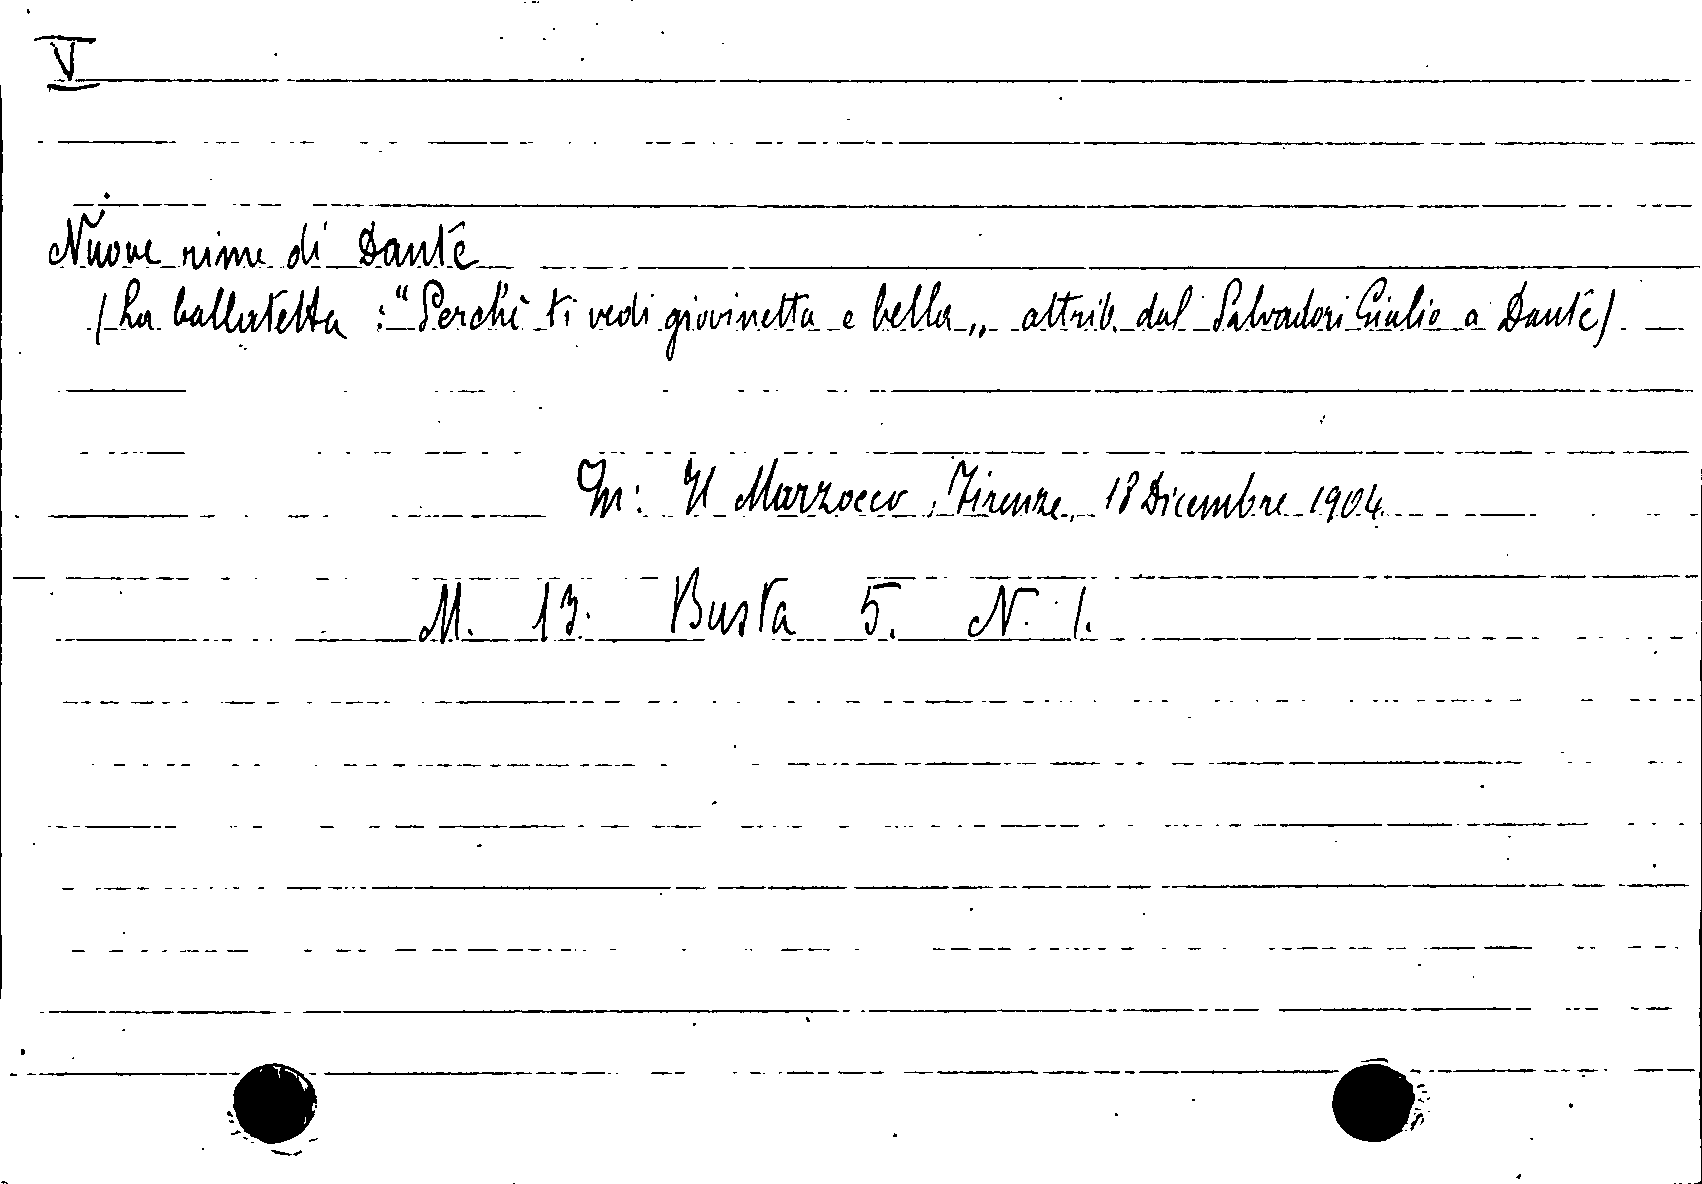 V
Nuove rime di Dante
(La ballatetta: "Perchè ti vedi giovinetta e bella„ attrib. dal Salvadori Giulio a Dante)
In: Il Marzocco, Firenze, 18 Dicembre 1904.
M. 13. Busta 5. N. 1.